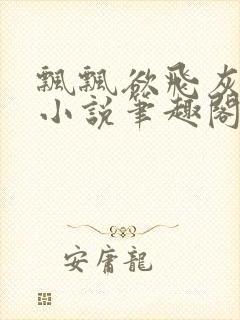 飄飄欲飛灰
小說筆趣閣
安庸龍